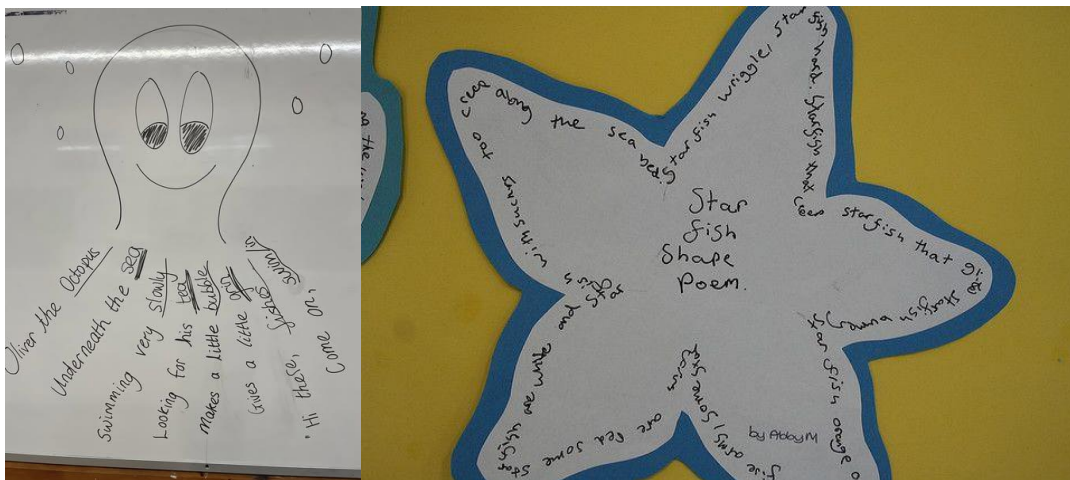 Oliver the Octopus
Underneath the sea
Swimming very slowly
Looking for his tea
Makes a little bubble
Gives a little
"Hi there, fishes
Come on, swim
Star
fish
Shape
Poem.
Starfish wriggle, star
fish
starfish that
creep starfish that
starfish
star fish orange
five arms, some
are red some
starfish are white and
star
fish
swims too
creep along the sea bed.
by Abby M